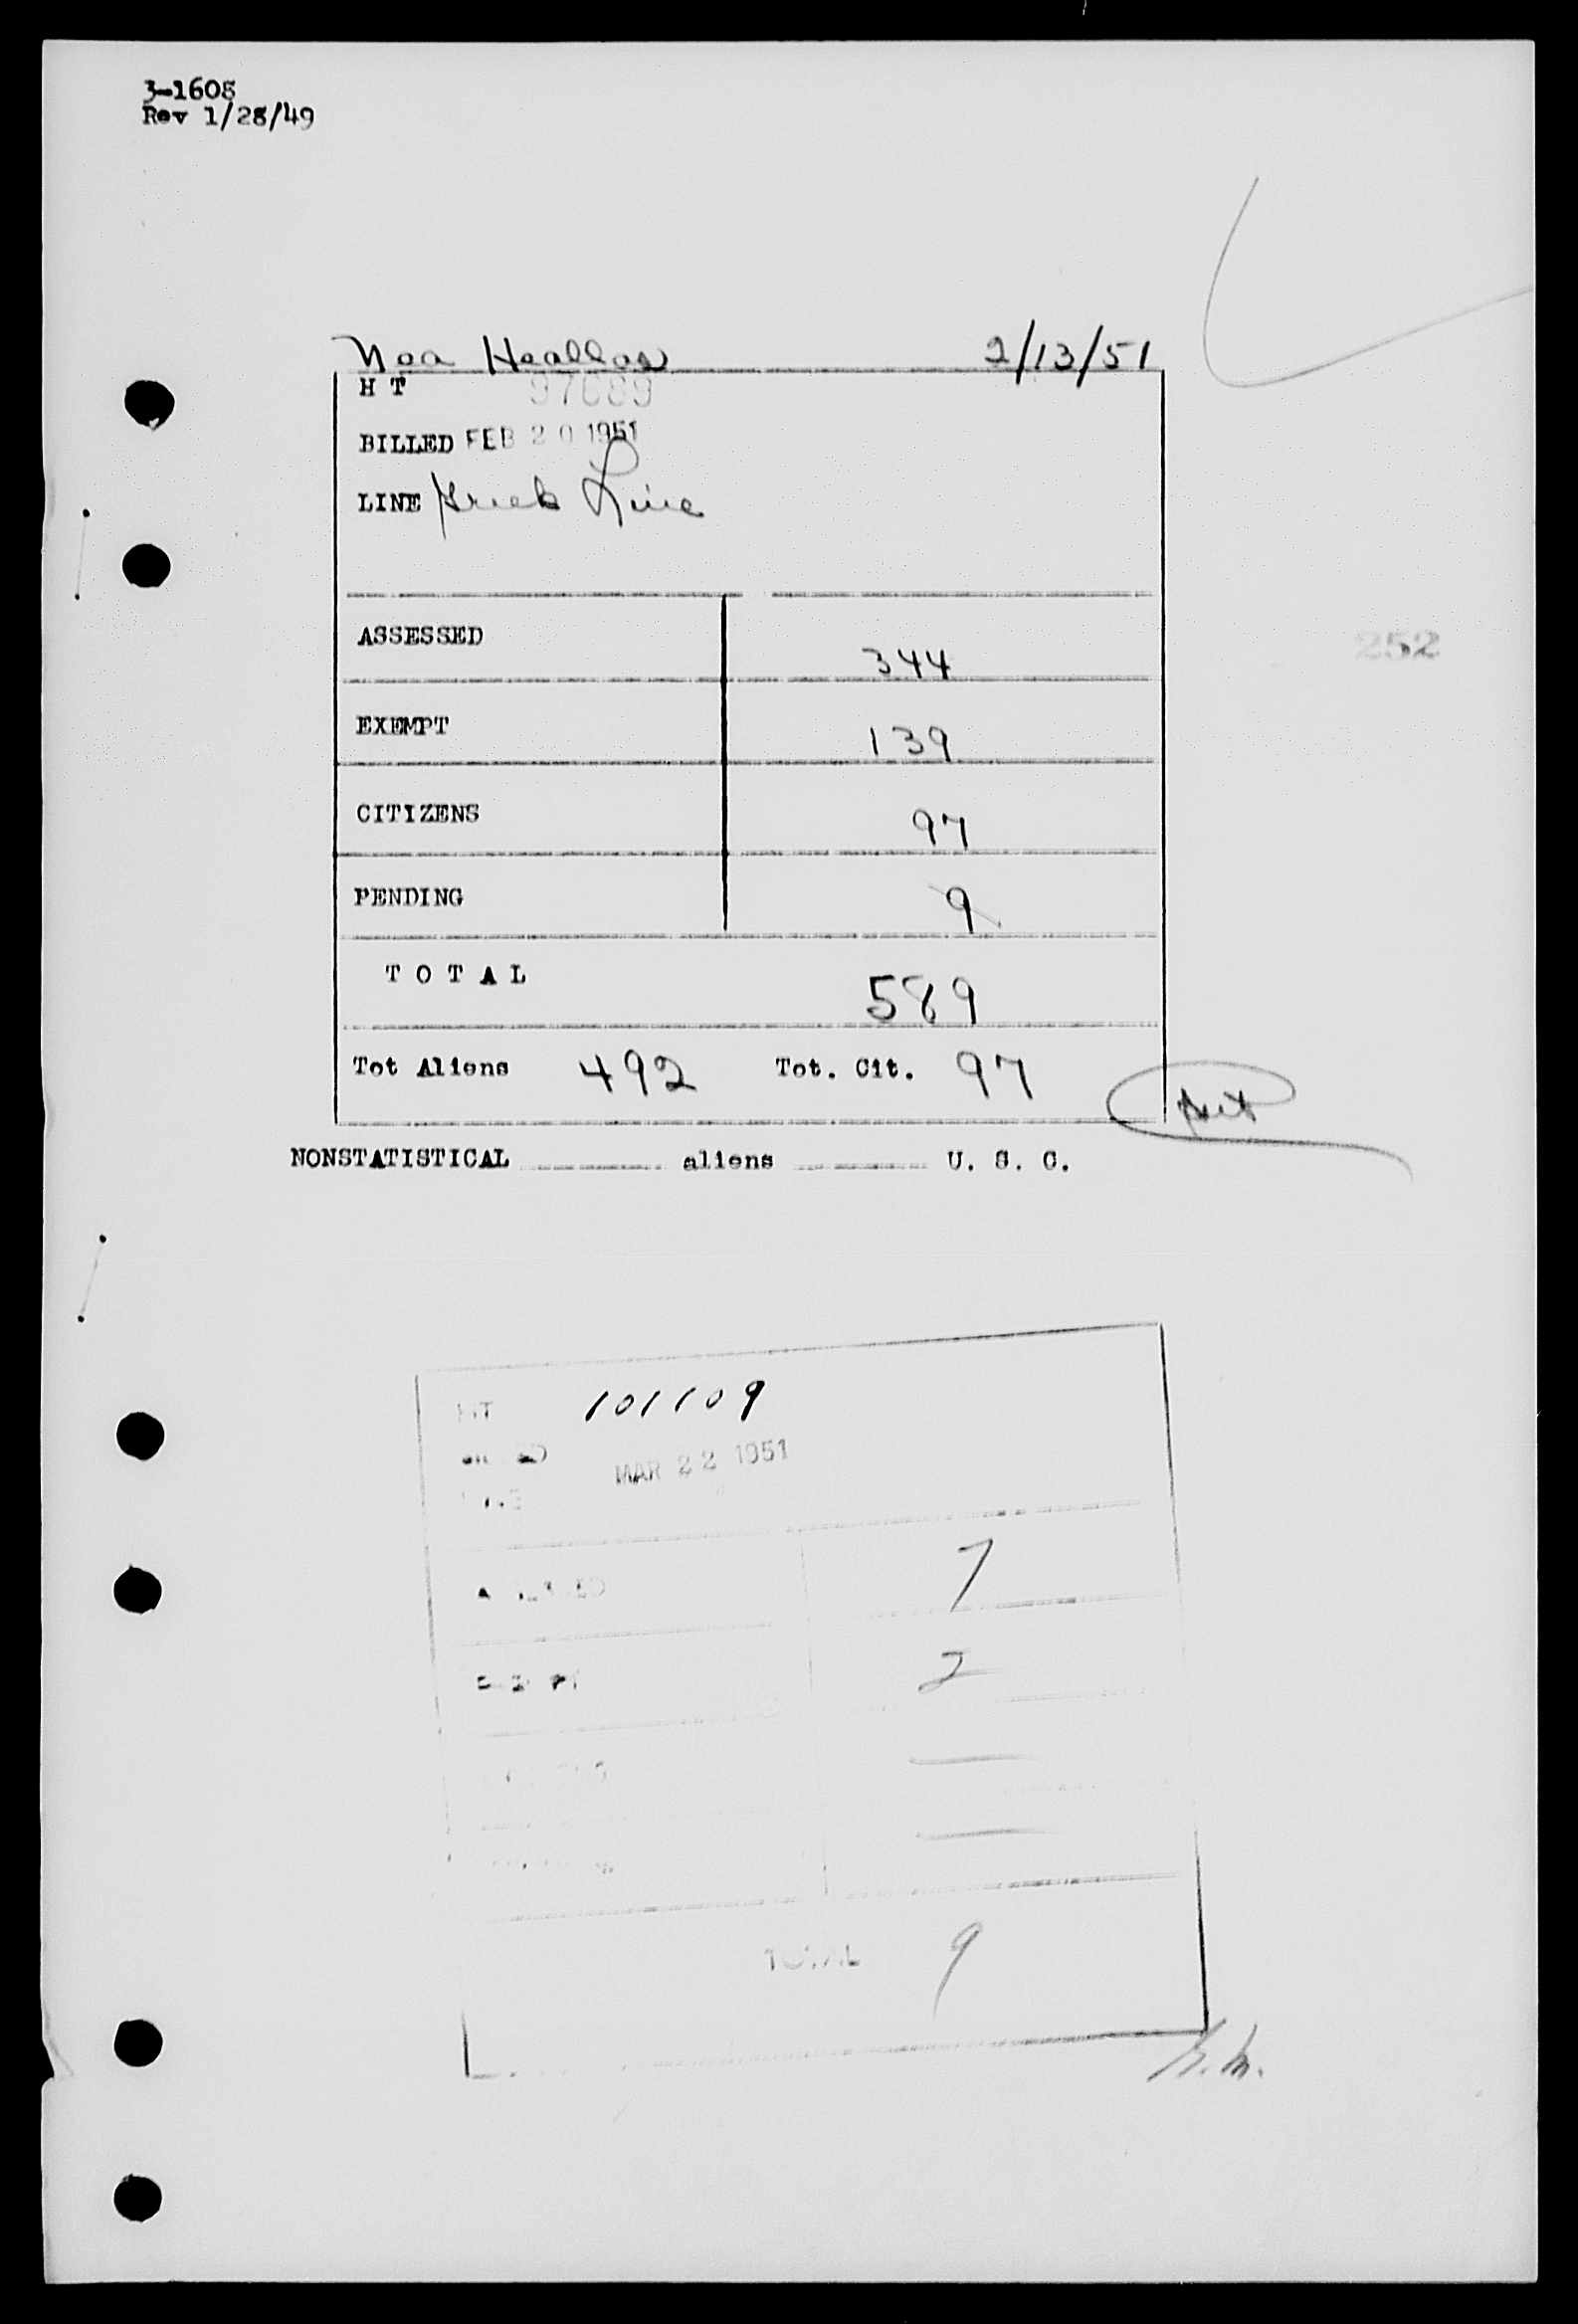 3-1608
Rev 1/28/49
Nea Heallas 2/13/51
H T 97689
BILLED FEB 20 1951
LINE Greek Line
ASSESSED 344
252
EXEMPT 139
CITIZENS 97
PENDING 9
T O T A L 589
Tot Aliens 492 Tot. Cit. 97
NONSTATISTICAL aliens U. S. C.
HT 101109
MAR 22 1951
7
2
TOTAL 9